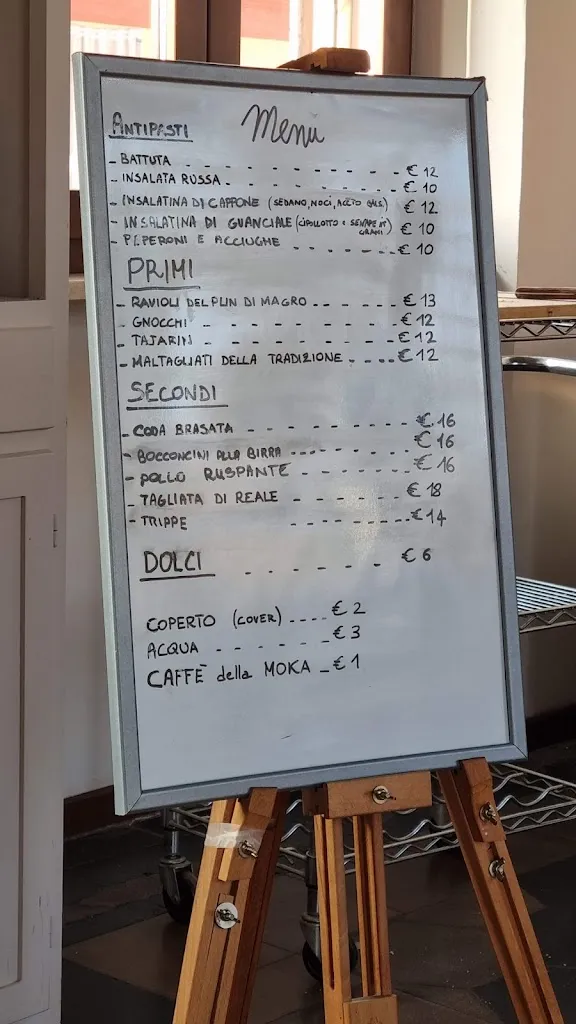 Menu
ANTIPASTI
- BATTUTA - - - - - - - - - € 12
- INSALATA RUSSA - - - - - - - € 10
- INSALATINA DI CAPPONE (SEDANO, NOCI, ACETO BALS.) € 12
- INSALATINA DI GUANCIALE (CIPOLLOTTO E SENAPE IN GRANI) € 10
- PEPERONI E ACCIUGHE - - - - - - € 10
PRIMI
- RAVIOLI DEL PLIN DI MAGRO - - - - - € 13
- GNOCCHI - - - - - - - - - € 12
- TAJARIN - - - - - - - - - € 12
- MALTAGLIATI DELLA TRADIZIONE - - - - € 12
SECONDI
- CODA BRASATA - - - - - - - - € 16
- BOCCONCINI ALLA BIRRA - - - - - - - € 16
- POLLO RUSPANTE - - - - - - - € 16
- TAGLIATA DI REALE - - - - - - € 18
- TRIPPE - - - - - - - - € 14
DOLCI - - - - - - - € 6
COPERTO (COVER) - - - - € 2
ACQUA - - - - - - € 3
CAFFÈ della MOKA - € 1